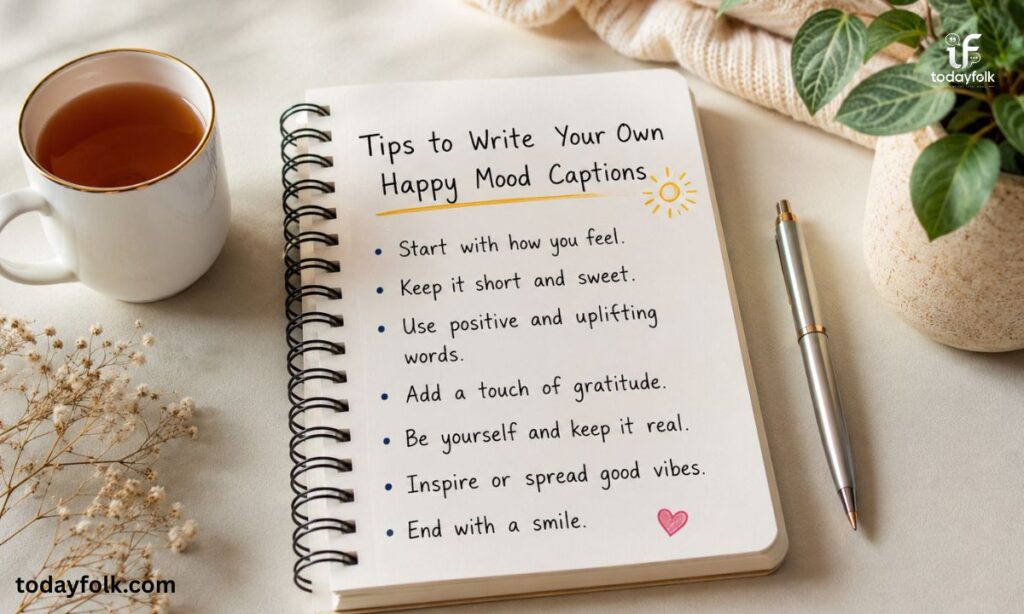 todayfolk
Tips to Write Your Own
Happy Mood Captions
• Start with how you feel.
• Keep it short and sweet.
• Use positive and uplifting
words.
• Add a touch of gratitude.
• Be yourself and keep it real.
• Inspire or spread good vibes.
• End with a smile.
todayfolk.com